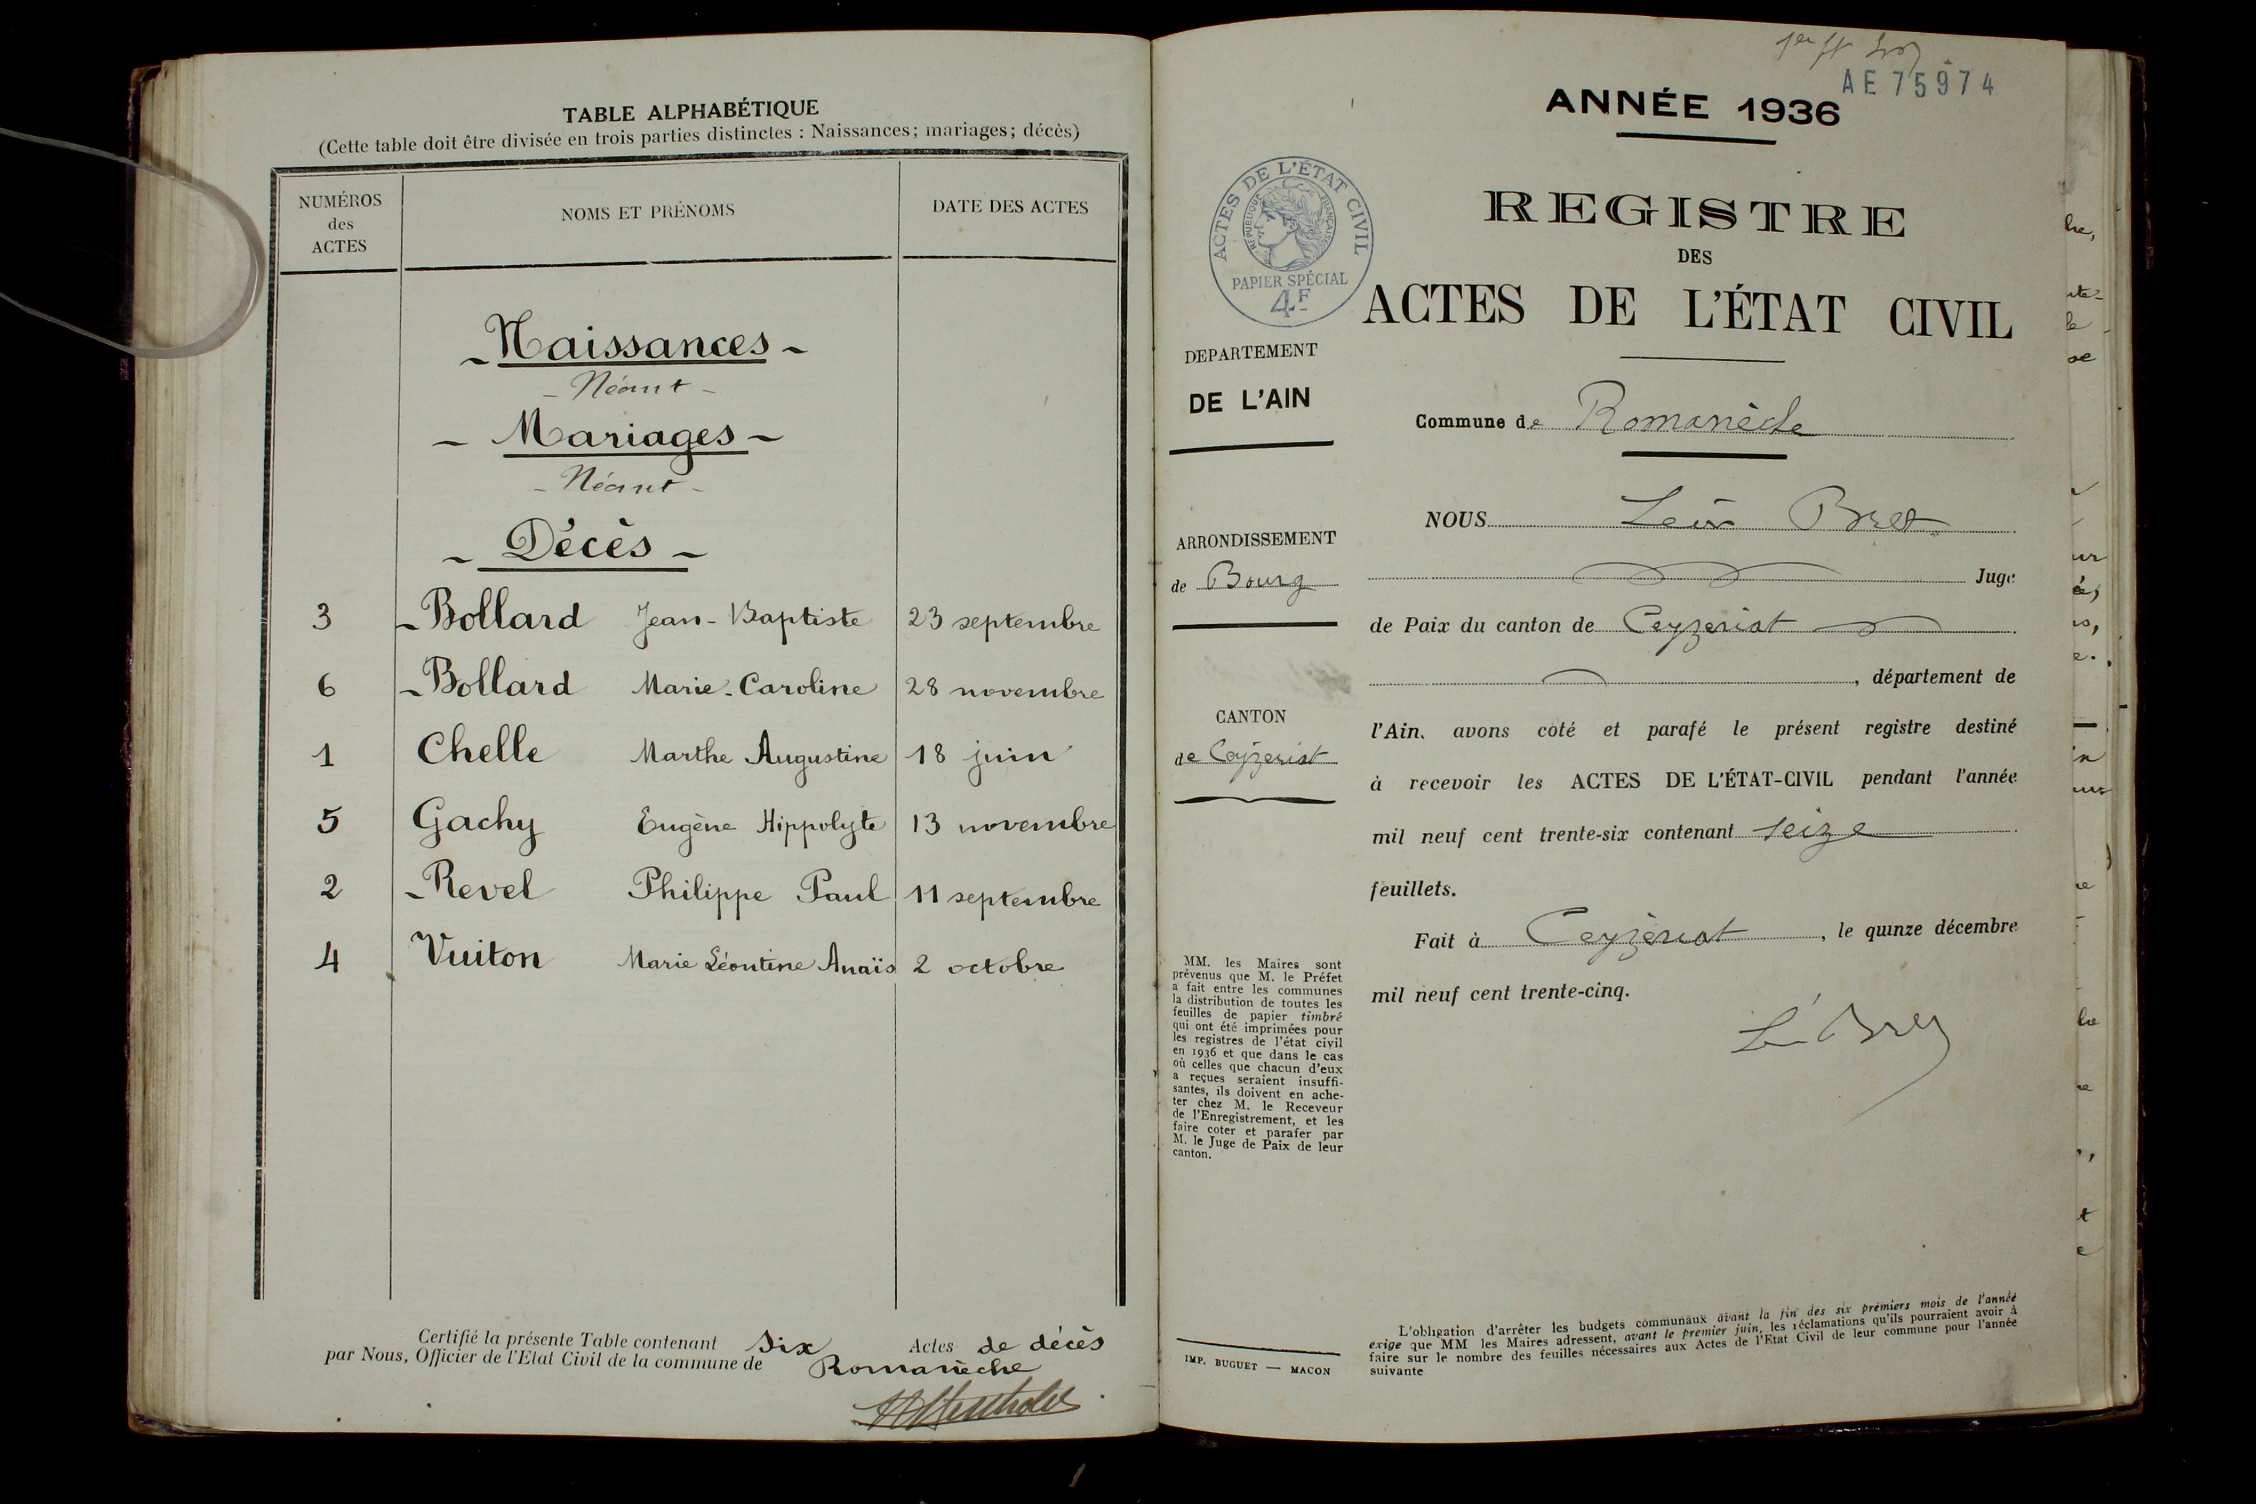 TABLE ALPHABÉTIQUE
(Cette table doit être divisée en trois parties distinctes : Naissances; mariages; décès)
NUMÉROS
des
ACTES
NOMS ET PRÉNOMS
DATE DES ACTES
- Naissances -
- Néant -
- Mariages -
- Néant -
- Décès -
3 - Bollard Jean-Baptiste 23 septembre
6 - Bollard Marie-Caroline 28 novembre
1 Chelle Marthe Augustine 18 juin
5 Gachy Eugène Hippolyte 13 novembre
2 - Revel Philippe Paul 11 septembre
4 Vuiton Marie Léontine Anaïs 2 octobre
Certifié la présente Table contenant six Actes de décès
par Nous, Officier de l'Etat Civil de la commune de Romanèche
AE 75974
ANNÉE 1936
ACTES DE L'ÉTAT CIVIL
RÉPUBLIQUE FRANÇAISE
PAPIER SPÉCIAL
4F
REGISTRE
DES
ACTES DE L'ÉTAT CIVIL
DEPARTEMENT
DE L'AIN
Commune de Romanèche
ARRONDISSEMENT
de Bourg
CANTON
de Ceyzeriat
NOUS Léon Bret
Juge
de Paix du canton de Ceyzeriat
, département de
l'Ain, avons côté et parafé le présent registre destiné
à recevoir les ACTES DE L'ÉTAT-CIVIL pendant l'année
mil neuf cent trente-six contenant seize
feuillets.
Fait à Ceyzériat, le quinze décembre
mil neuf cent trente-cinq.
MM. les Maires sont
prévenus que M. le Préfet
a fait entre les communes
la distribution de toutes les
feuilles de papier timbré
qui ont été imprimées pour
les registres de l'état civil
en 1936 et que dans le cas
où celles que chacun d'eux
a reçues seraient insuffi-
santes, ils doivent en ache-
ter chez M. le Receveur
de l'Enregistrement, et les
faire coter et parafer par
M. le Juge de Paix de leur
canton.
IMP. BUGUET — MACON
L'obligation d'arrêter les budgets communaux avant la fin des six premiers mois de l'année
exige que MM les Maires adressent, avant le premier juin, les réclamations qu'ils pourraient avoir à
faire sur le nombre des feuilles nécessaires aux Actes de l'Etat Civil de leur commune pour l'année
suivante